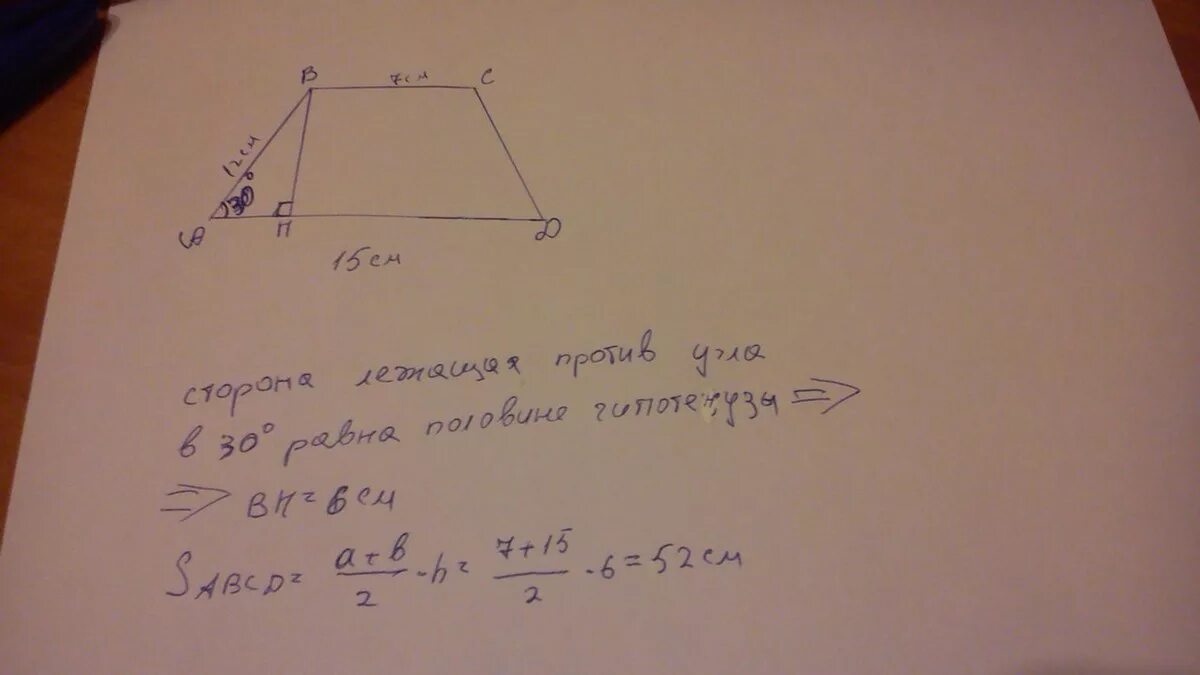 B 7см C
12см
30°
A H D
15см
сторона лежащая против угла
в 30° равна половине гипотенузы =>
=> BH = 6 см
S ABCD = a+b/2 · h = 7+15/2 · 6 = 52 см